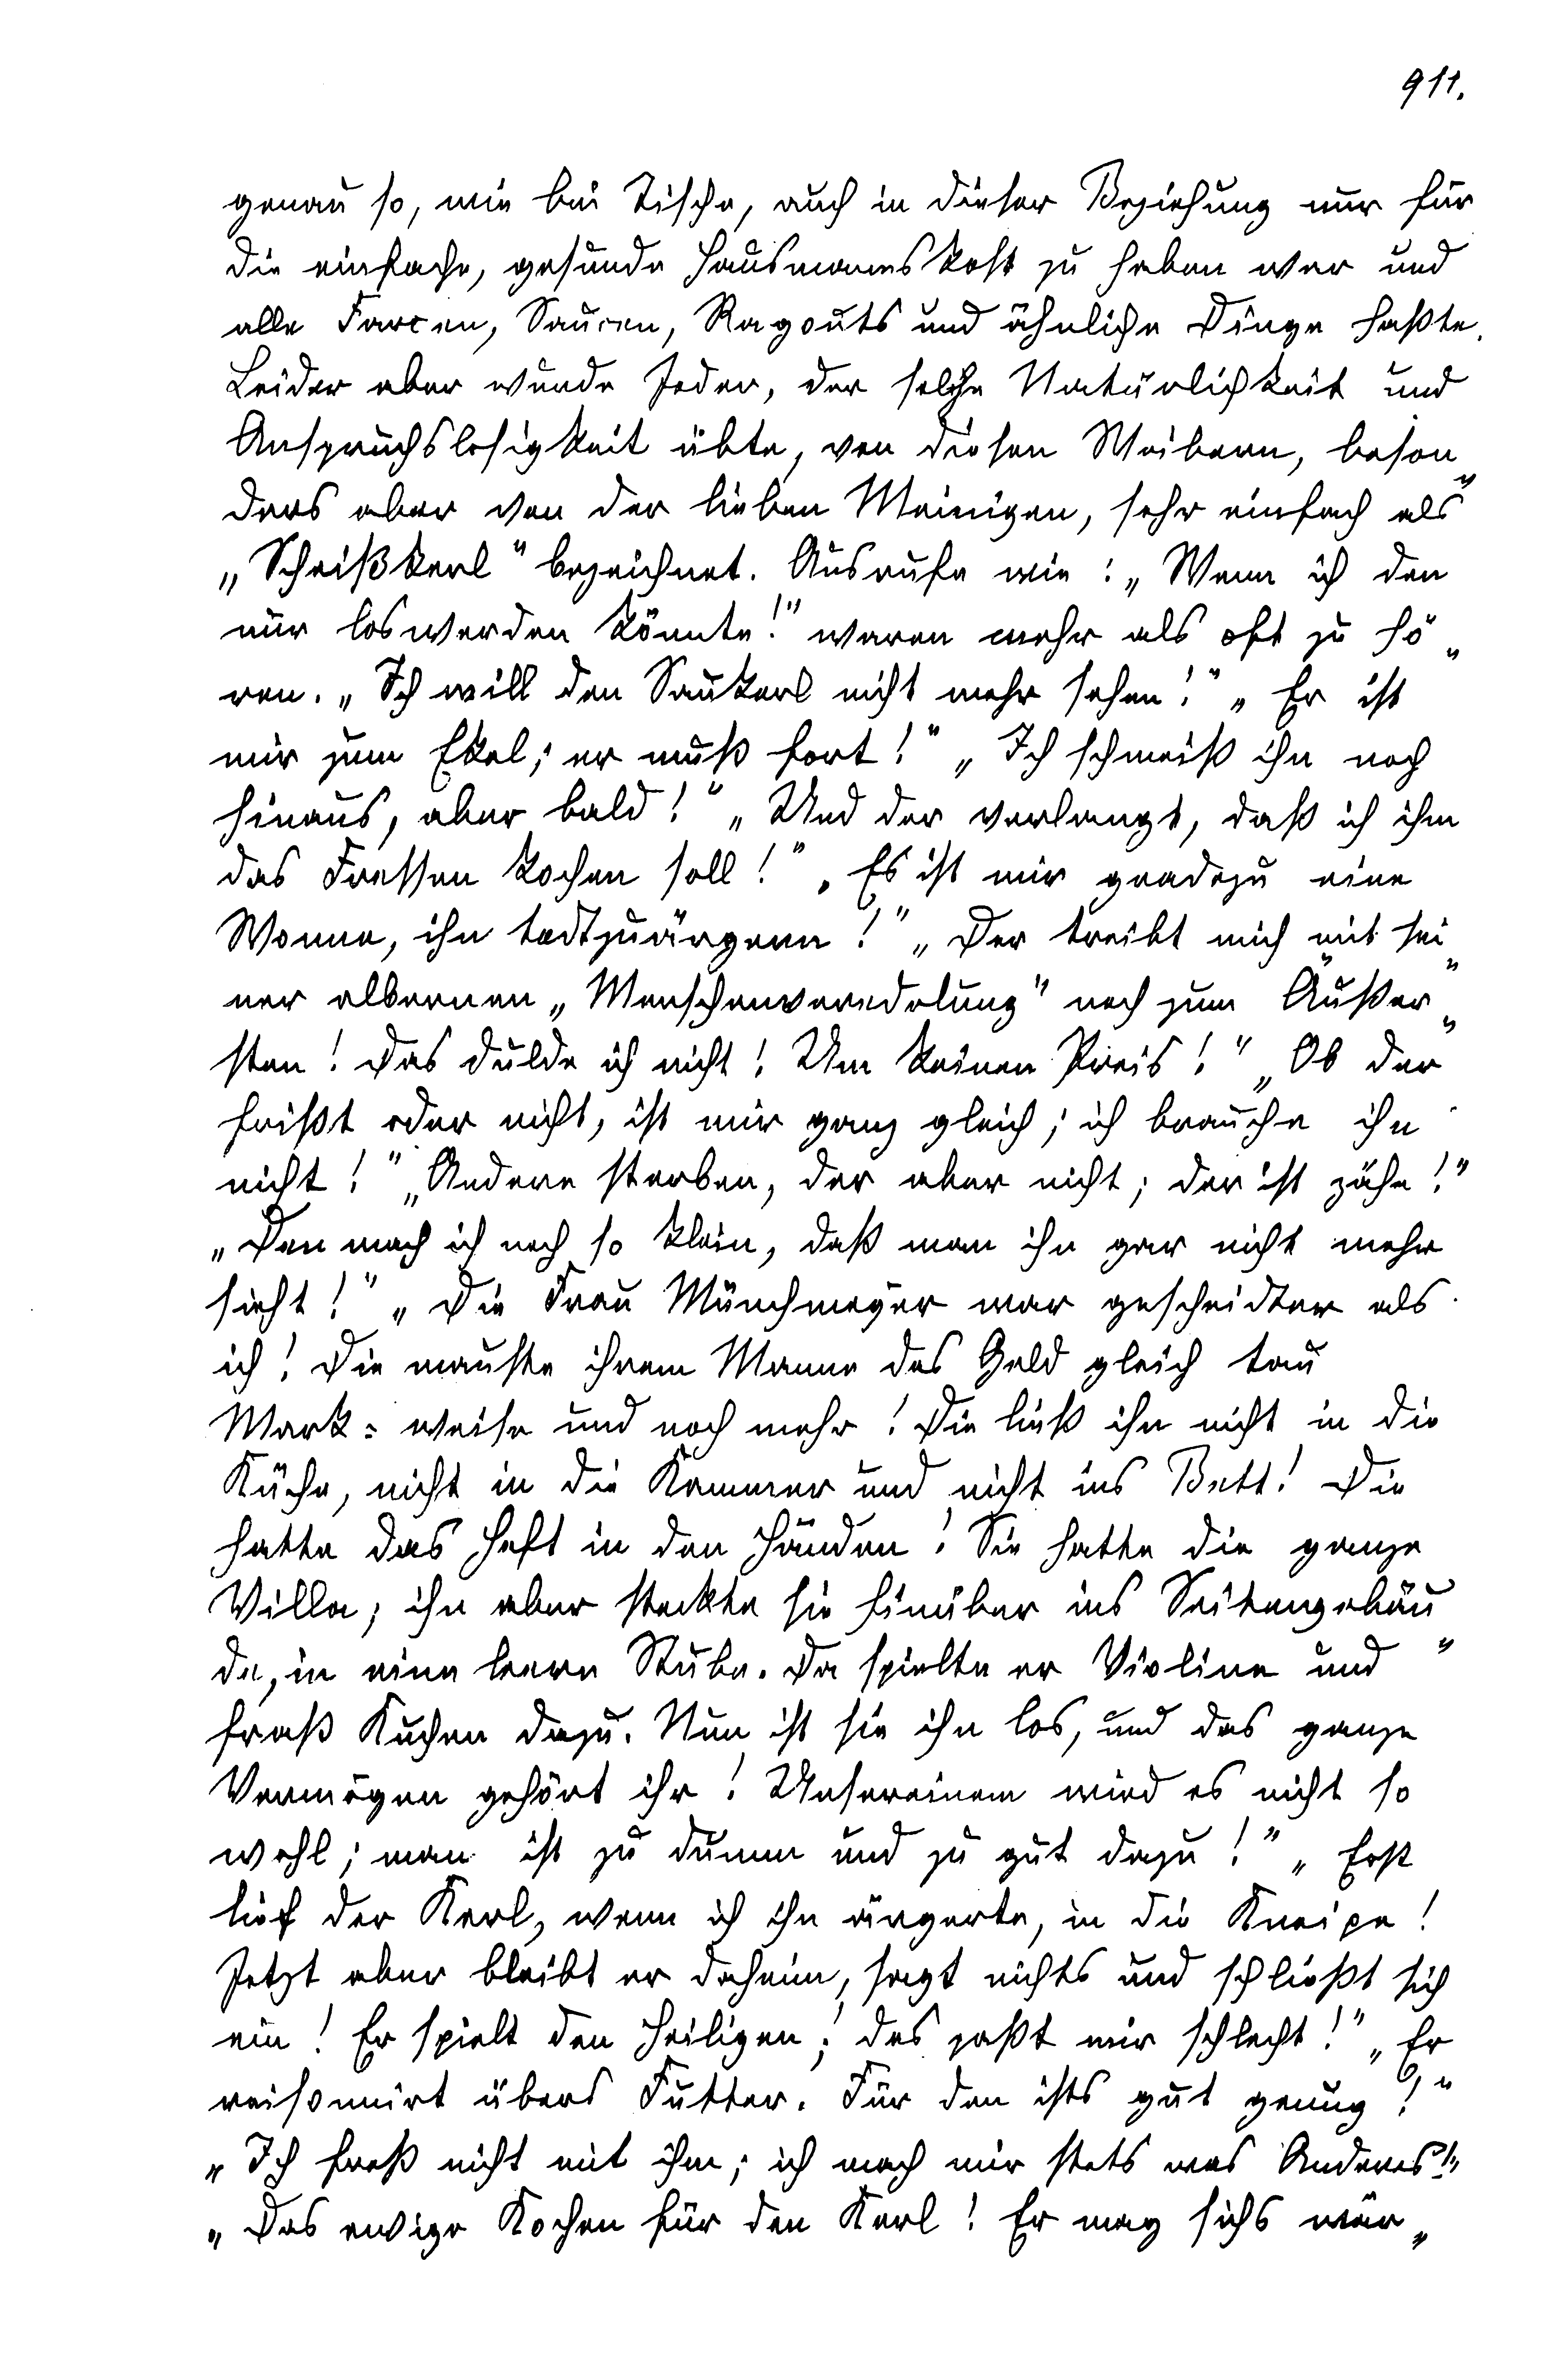 911.
genau so, wie bei Tische, auch in dieser Beziehung nur für
die einfache, gesunde Hausmannskost zu haben war und
alle Farcen, Saucen, Ragouts und ähnliche Dinge haßte.
Leider aber wurde Jeder, der solche Natürlichkeit und
Anspruchslosigkeit übte, von diesen Weibern, beson„
ders aber von der lieben Meinigen, sehr einfach als
„Scheißkerl“ bezeichnet. Ausrufe wie: „Wenn ich den
nur loswerden könnte!“ waren mehr als oft zu hö„
ren. „Ich will den Saukerl nicht mehr sehen!“ „Er ist
mir zum Ekel; er muß fort!“ „Ich schmeiß ihn noch
hinaus, aber bald!“ „Und der verlangt, daß ich ihm
das Fressen kochen soll!“ „Es ist mir geradezu eine
Wonne, ihn todtzuärgern!“ „Der treibt mich mit sei„
ner albernen „Menschenveredelung“ noch zum Äußer„
sten! Das dulde ich nicht! Um keinen Preis!“ „Ob der
frißt oder nicht, ist mir ganz gleich; ich brauche ihn
nicht!“ „Andere sterben, der aber nicht; der ist zähe!“
„Den mach ich noch so klein, daß man ihn gar nicht mehr
sieht!“ „Die Frau Münchmeyer war gescheidter als
ich! Die mauste ihrem Manne das Geld gleich tau
Mark = weise und noch mehr! Die ließ ihn nicht in die
Küche, nicht in die Kammer und nicht ins Bett! Die
hatte das Heft in den Händen! Sie hatte die ganze
Villa; ihn aber steckte sie hinüber ins Seitengebäu„
de, in eine leere Stube. Da spielte er Violine und
fraß Kuchen dazu. Nun ist sie ihn los, und das ganze
Vermögen gehört ihr! Unsereinem wird es nicht so
wohl; man ist zu dumm und zu gut dazu!“ „Erst
lief der Kerl, wenn ich ihn ärgerte, in die Kneipe!
Jetzt aber bleibt er daheim, sagt nichts und schließt sich
ein! Er spielt den Heiligen; das paßt mir schlecht!“ „Er
raisonnirt übers Futter. Für den ists gut genug!“
„Ich freß nicht mit ihm; ich mach mir stets was Anderes!“
„Das ewige Kochen für den Kerl! Er mag sichs wär„